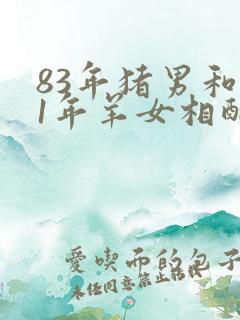 83年猪男和
1年羊女相配
愛喫肉的包子
未经同意禁止转载